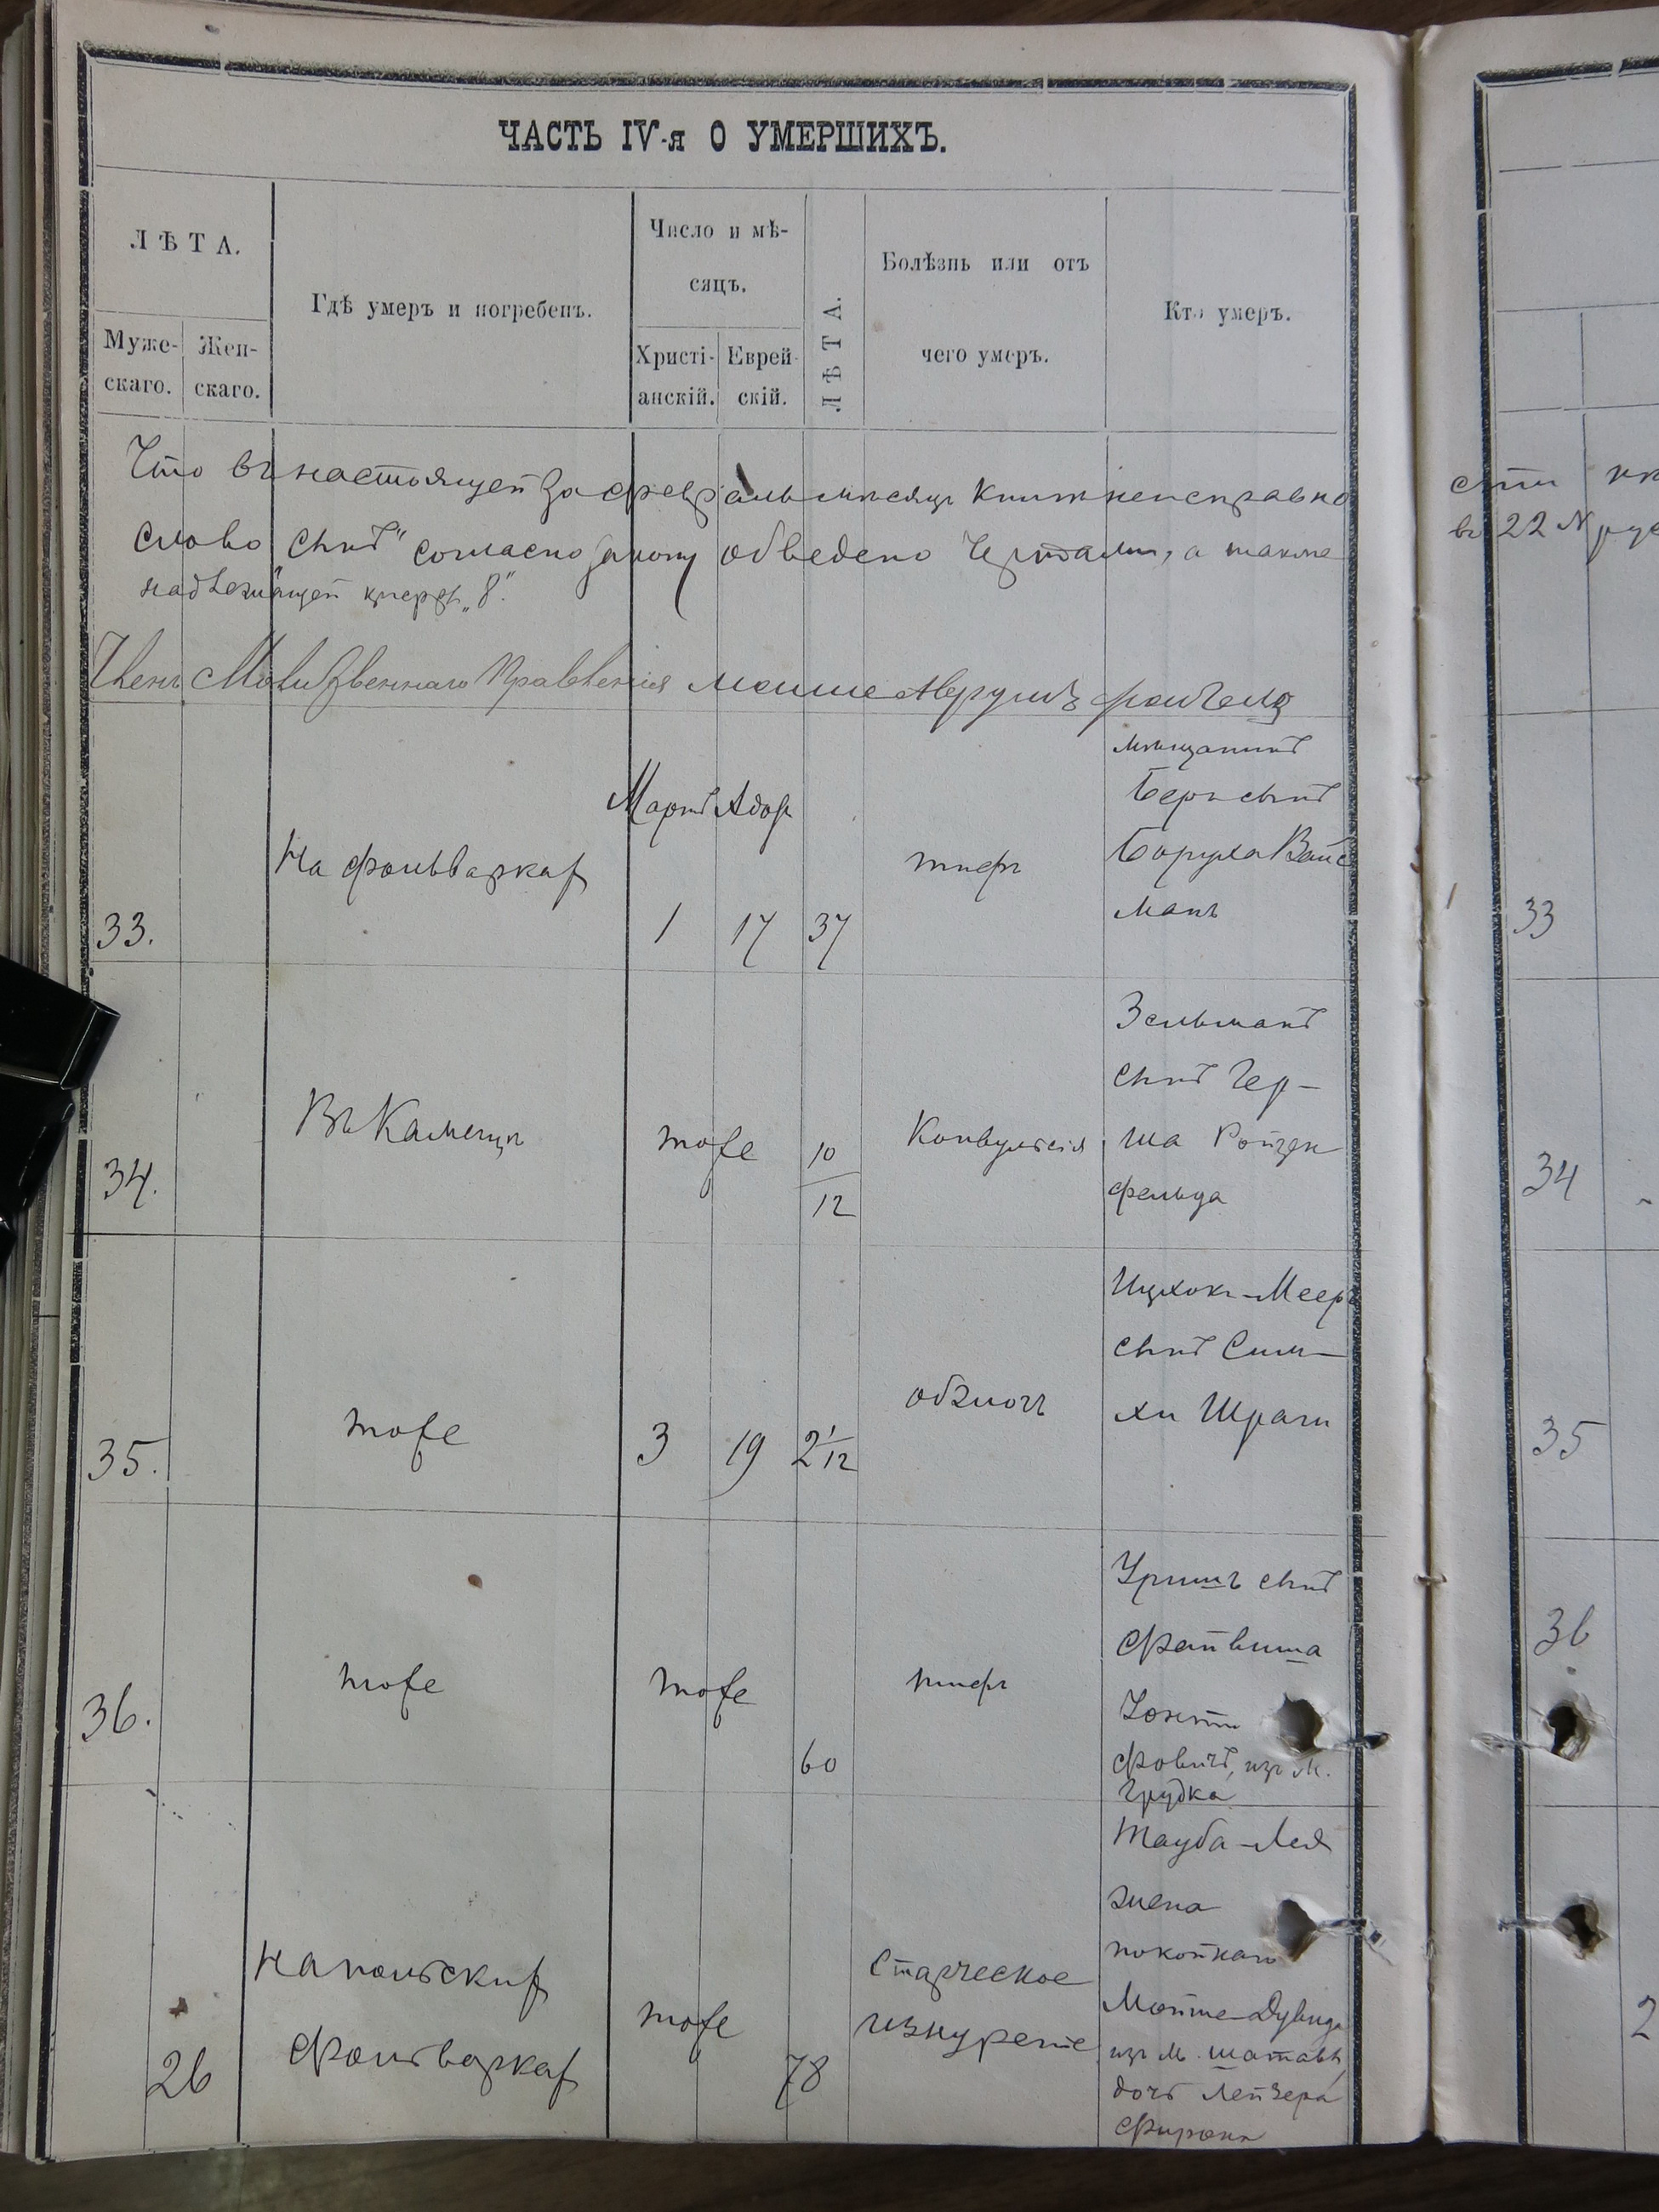 ЧАСТЬ IV-я О УМЕРШИХЪ.
ЛѢТА.
Муже-
скаго.
Жен-
скаго.
Гдѣ умеръ и погребенъ.
Число и мѣ-
сяцъ.
Христі-
анскій.
Еврей-
скій.
ЛѢТА.
Болѣзнь или отъ
чего умеръ.
Кто умеръ.
Что въ настоящей за февраль мѣсяцъ книжкѣ исправно
слово "сынъ" согласно закону обведено чертами, а также
надлежащей "8".
Членъ Молитвеннаго Правленія Мошше
33.
На фольваркахъ
Мартъ Адаръ
1 17 37
тифъ
мѣщанинъ
Беръ сынъ
Боруха Вайс
манъ
34.
Въ Каменцѣ
тоже
10
12
Конвульсія
Зельманъ
сынъ Гер-
ша Ройзен
фельда
35.
тоже
3 19 2 1/12
Ицхокъ-Мееръ
сынъ Сим-
хи Шраги
36.
тоже
тоже
60
тифъ
сынъ
Файвиша
фовичъ, изъ м.
Грудка
26
На польскихъ
фольваркахъ
тоже
78
Старческое
изнуреніе
Тауба-Лея
жена
покойнаго
Мойше-Дувида
изъ м. Шатавы
дочь Лейзера
33
34
35
36
2